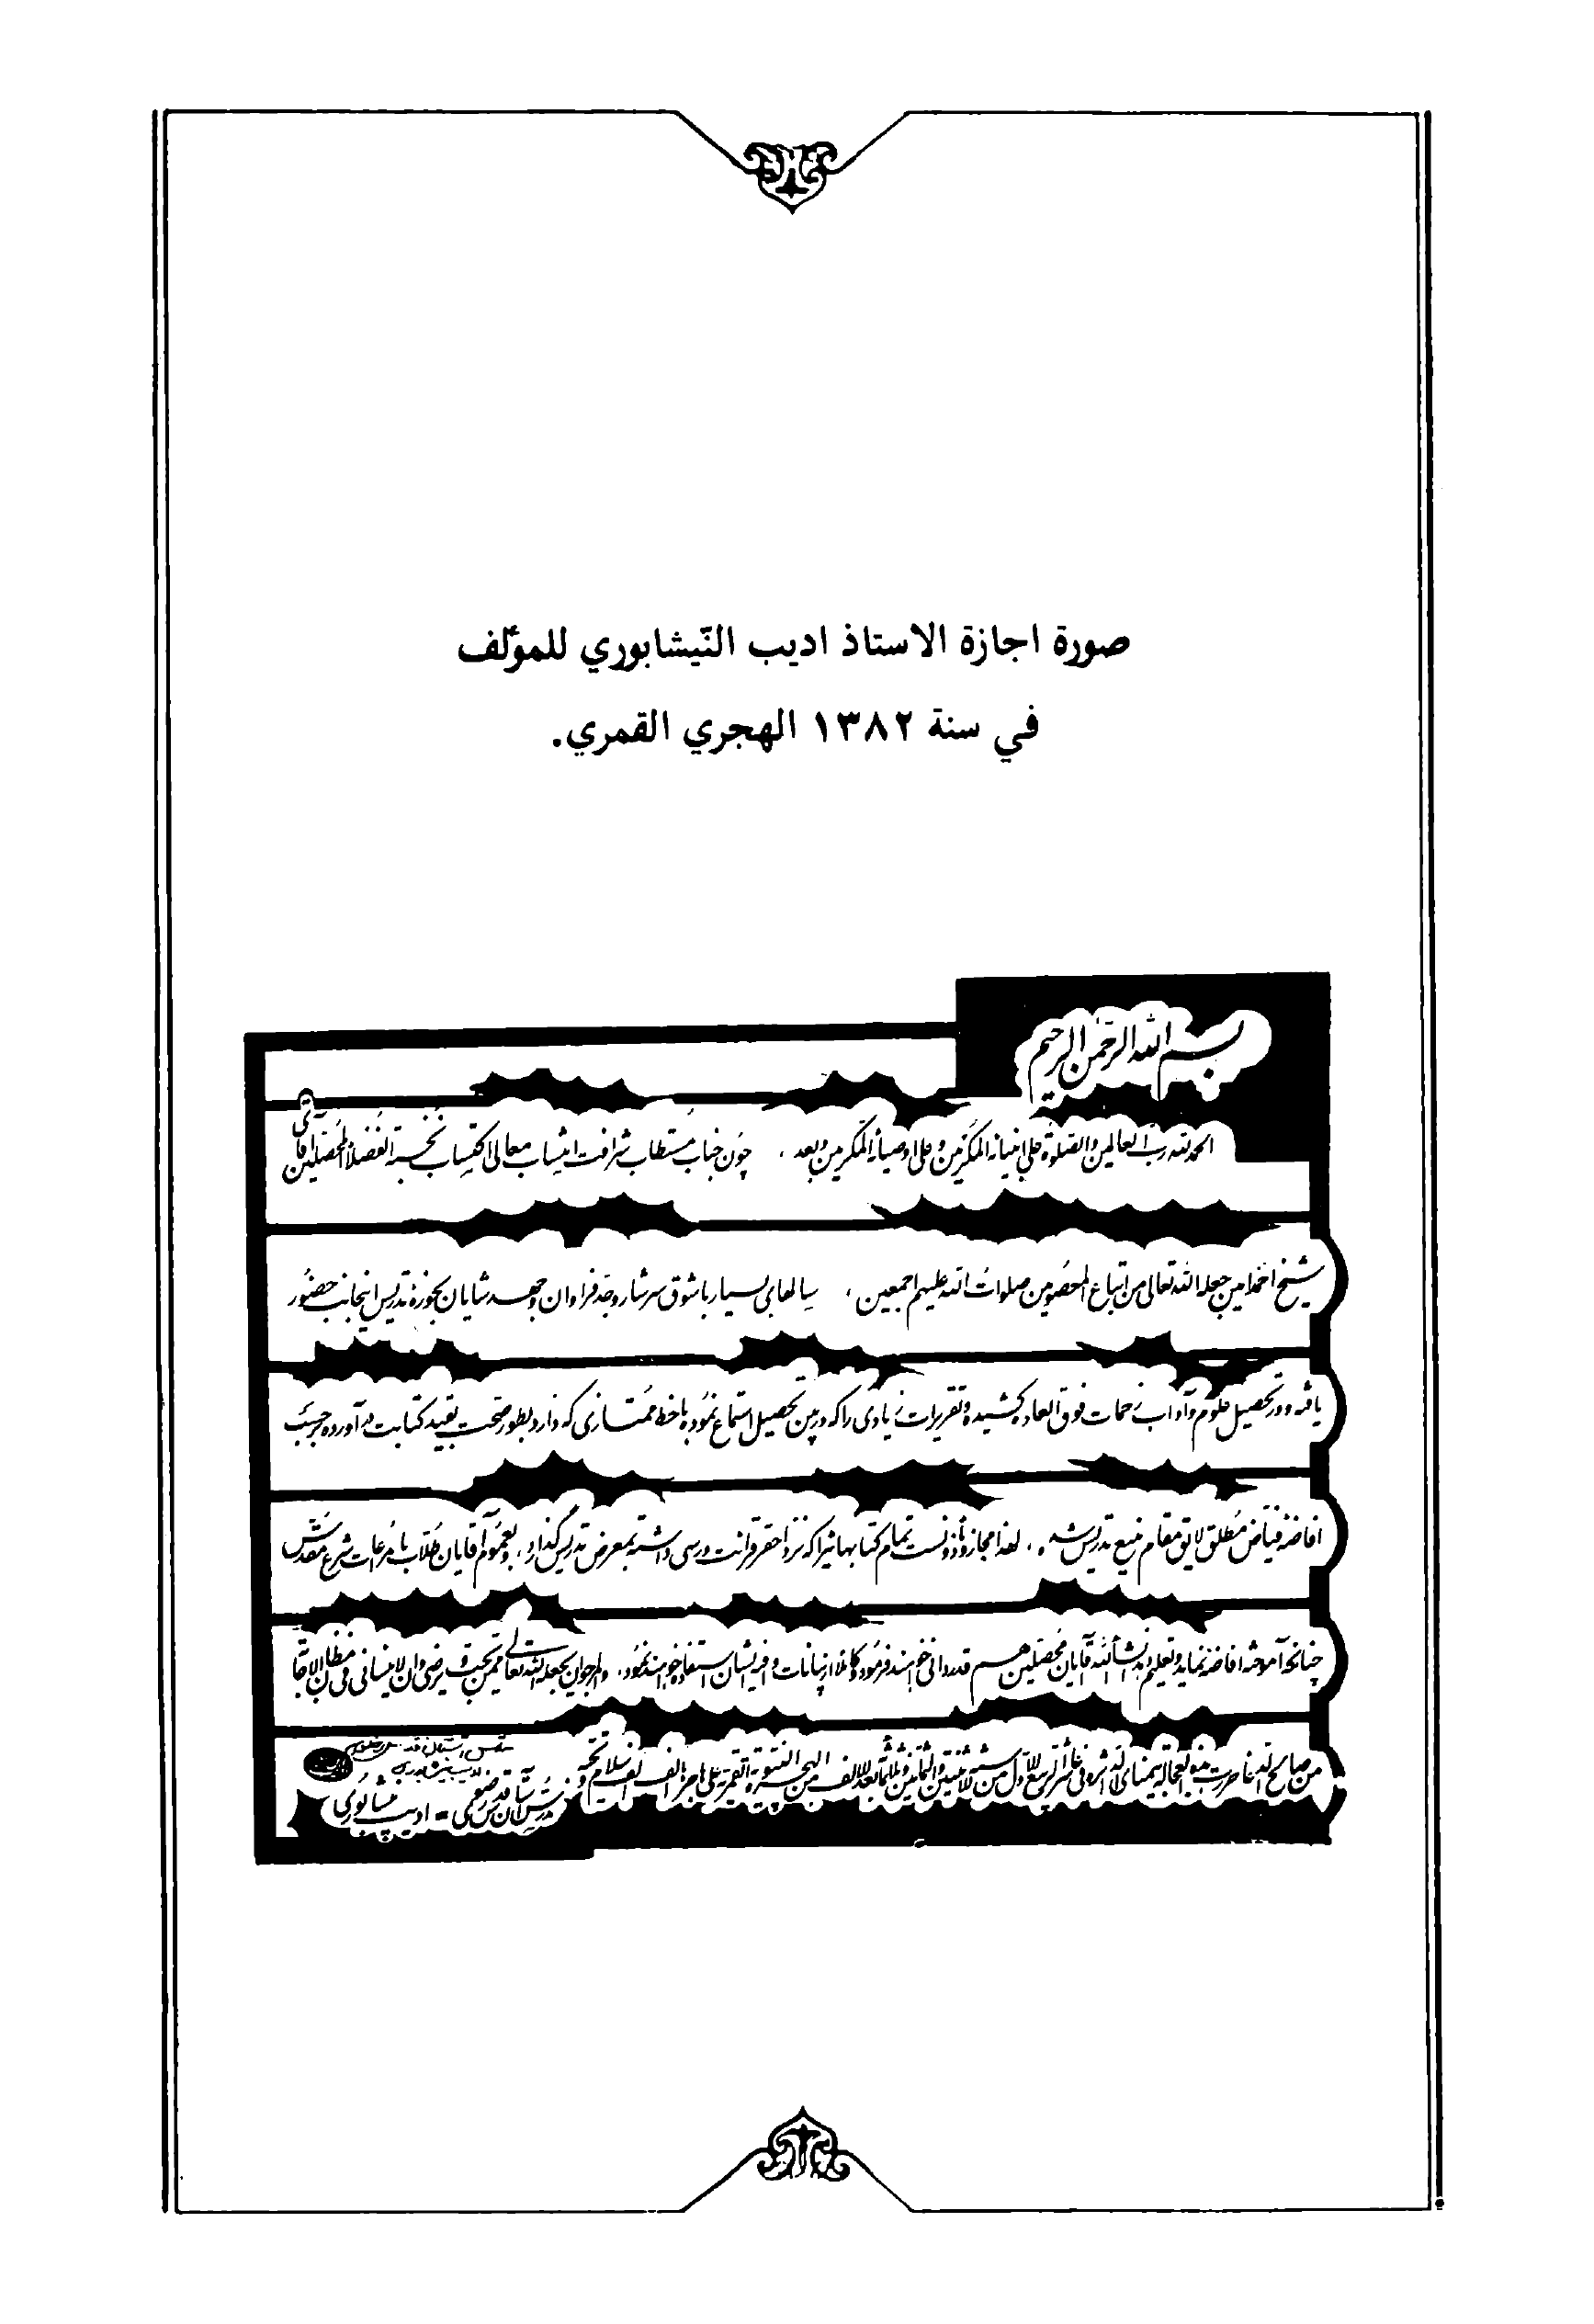 صورة اجازة الاستاذ اديب النّيشابوري للمؤلّف
في سنة ١٣٨٢ الهجري القمري.
بسم الله الرحمن الرحیم
الحمد لله رب العالمین والصلوة علی انبیائه المکرمین وعلی اوصیائه المکرمین وبعد ، چون جناب مستطاب شرافت انتساب معالی اکتساب نخبة الفضلاء المحصلین آقای
شیخ احمد امین جعله الله تعالی من اتباع المعصومین صلوات الله علیهم اجمعین ، سالهای بسیار با شوق سرشار وجد فراوان و جهد شایان بحوزه تدریس اینجانب حضور
یافته ودر تحصیل علوم وآداب زحمات فوق العاده کشیده وتقریرات زیادی را که در بین تحصیل استماع نموده با خط ممتازی که دارد بطور صحت بقید کتابت در آورده بحسب
افاضه فیاض مطلق لایق مقام منیع تدریس شده ، لهذا مجاز و مأذونست تمام کتابهائیرا که نزد احقر قرائت ودرسی داشته بمعرض تدریس گذارد ، وبعموم آقایان طلاب با مراعات شرع مقدس
چنانچه آموخته افاضه نماید وتعلیم بدهد انشاء الله آقایان محصلین هم قدردانی خواهند فرمود و کاملا از بیانات وافیه ایشان استفاده خواهند نمود ، والمرجو ان یجعله الله تعالی ممن یحب و یرضی وان لا ینسانی فی مظان الاجابات
من صالح الدعاء حررت هذه العجالة بیمنای الداثرة فی عاشر الربیع الاول من سنة الاثنتین والثمانین وثلثمأة بعد الالف من الهجرة النبویة القمریة علی هاجرها الف الف سلام وتحیة
مدرس آستان قدس رضوی = ادیب نیشابوری